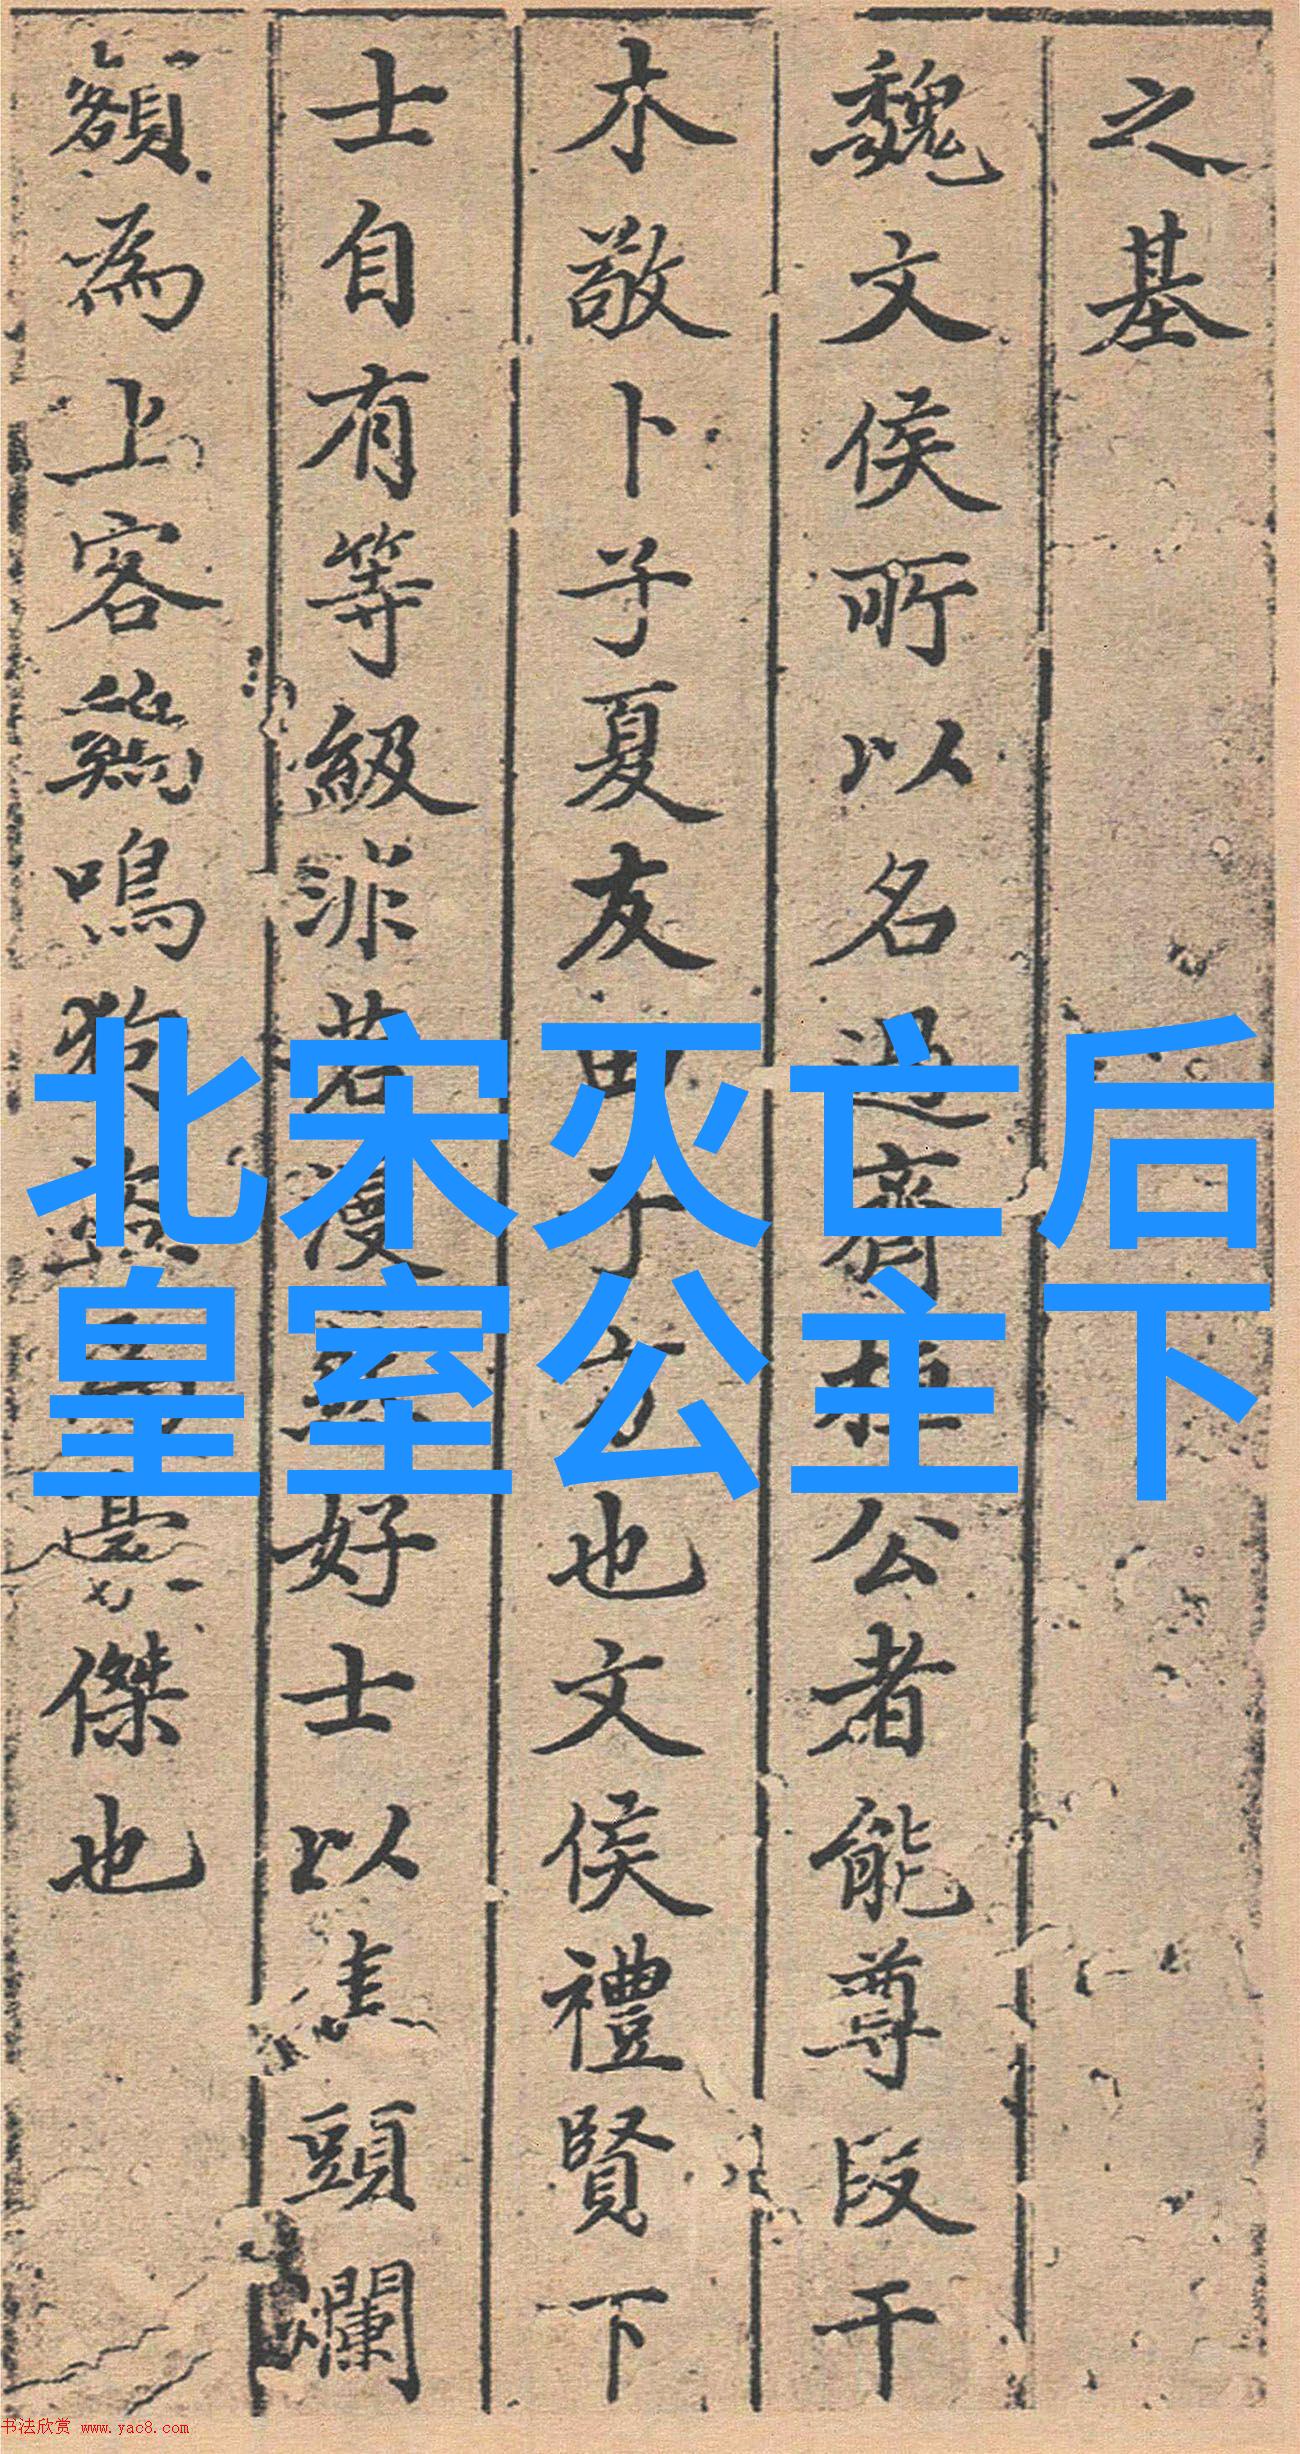 之基
魏文侯所以名過齊桓公者能尊段干
木敬卜子夏友田子方也文侯禮賢下
士自有等級非若漫好士以焦頭爛
額為上客鷄鳴狗盜為豪傑也
北宋灭亡后
皇室公主下
书法欣赏 www.yac8.com